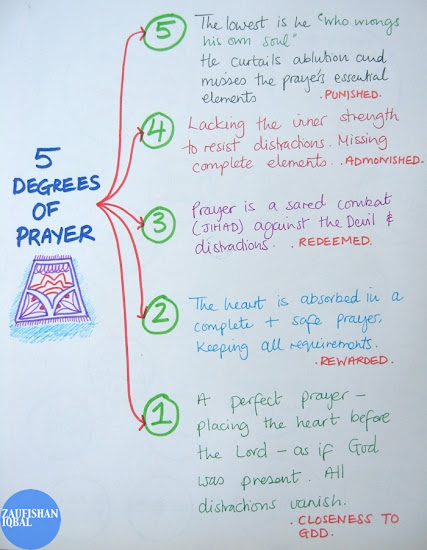 5
DEGREES
OF
PRAYER
5
The lowest is he "who wrongs
his own soul"
He curtails ablution and
misses the prayer's essential
elements
.PUNISHED.
4
Lacking the inner strength
to resist distractions. Missing
complete elements. .ADMONISHED.
3
Prayer is a sared combat
(JIHAD) against the Devil &
distractions. .REDEEMED.
2
The heart is absorbed in a
complete + safe prayer,
keeping all requirements.
.REWARDED.
1
A perfect prayer –
placing the heart before
the Lord – as if God
was present. All
distractions vanish.
.CLOSENESS TO
GOD.
ZAUFISHAN
IQBAL